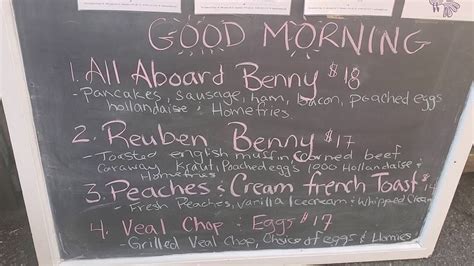 GOOD MORNING
1. All Aboard Benny $18
- Pancakes, sausage, ham, bacon, poached eggs
hollandaise & Homefries.
2. Reuben Benny $17
- Toasted english muffin, corned beef
Caraway Kraut, Poached eggs 1000 Hollandaise &
Homefries
3. Peaches & Cream french Toast $14
- Fresh Peaches, Vanilla Icecream & Whipped Cream
4. Veal Chop & Eggs $17
- Grilled Veal Chop, Choice of eggs & Homies